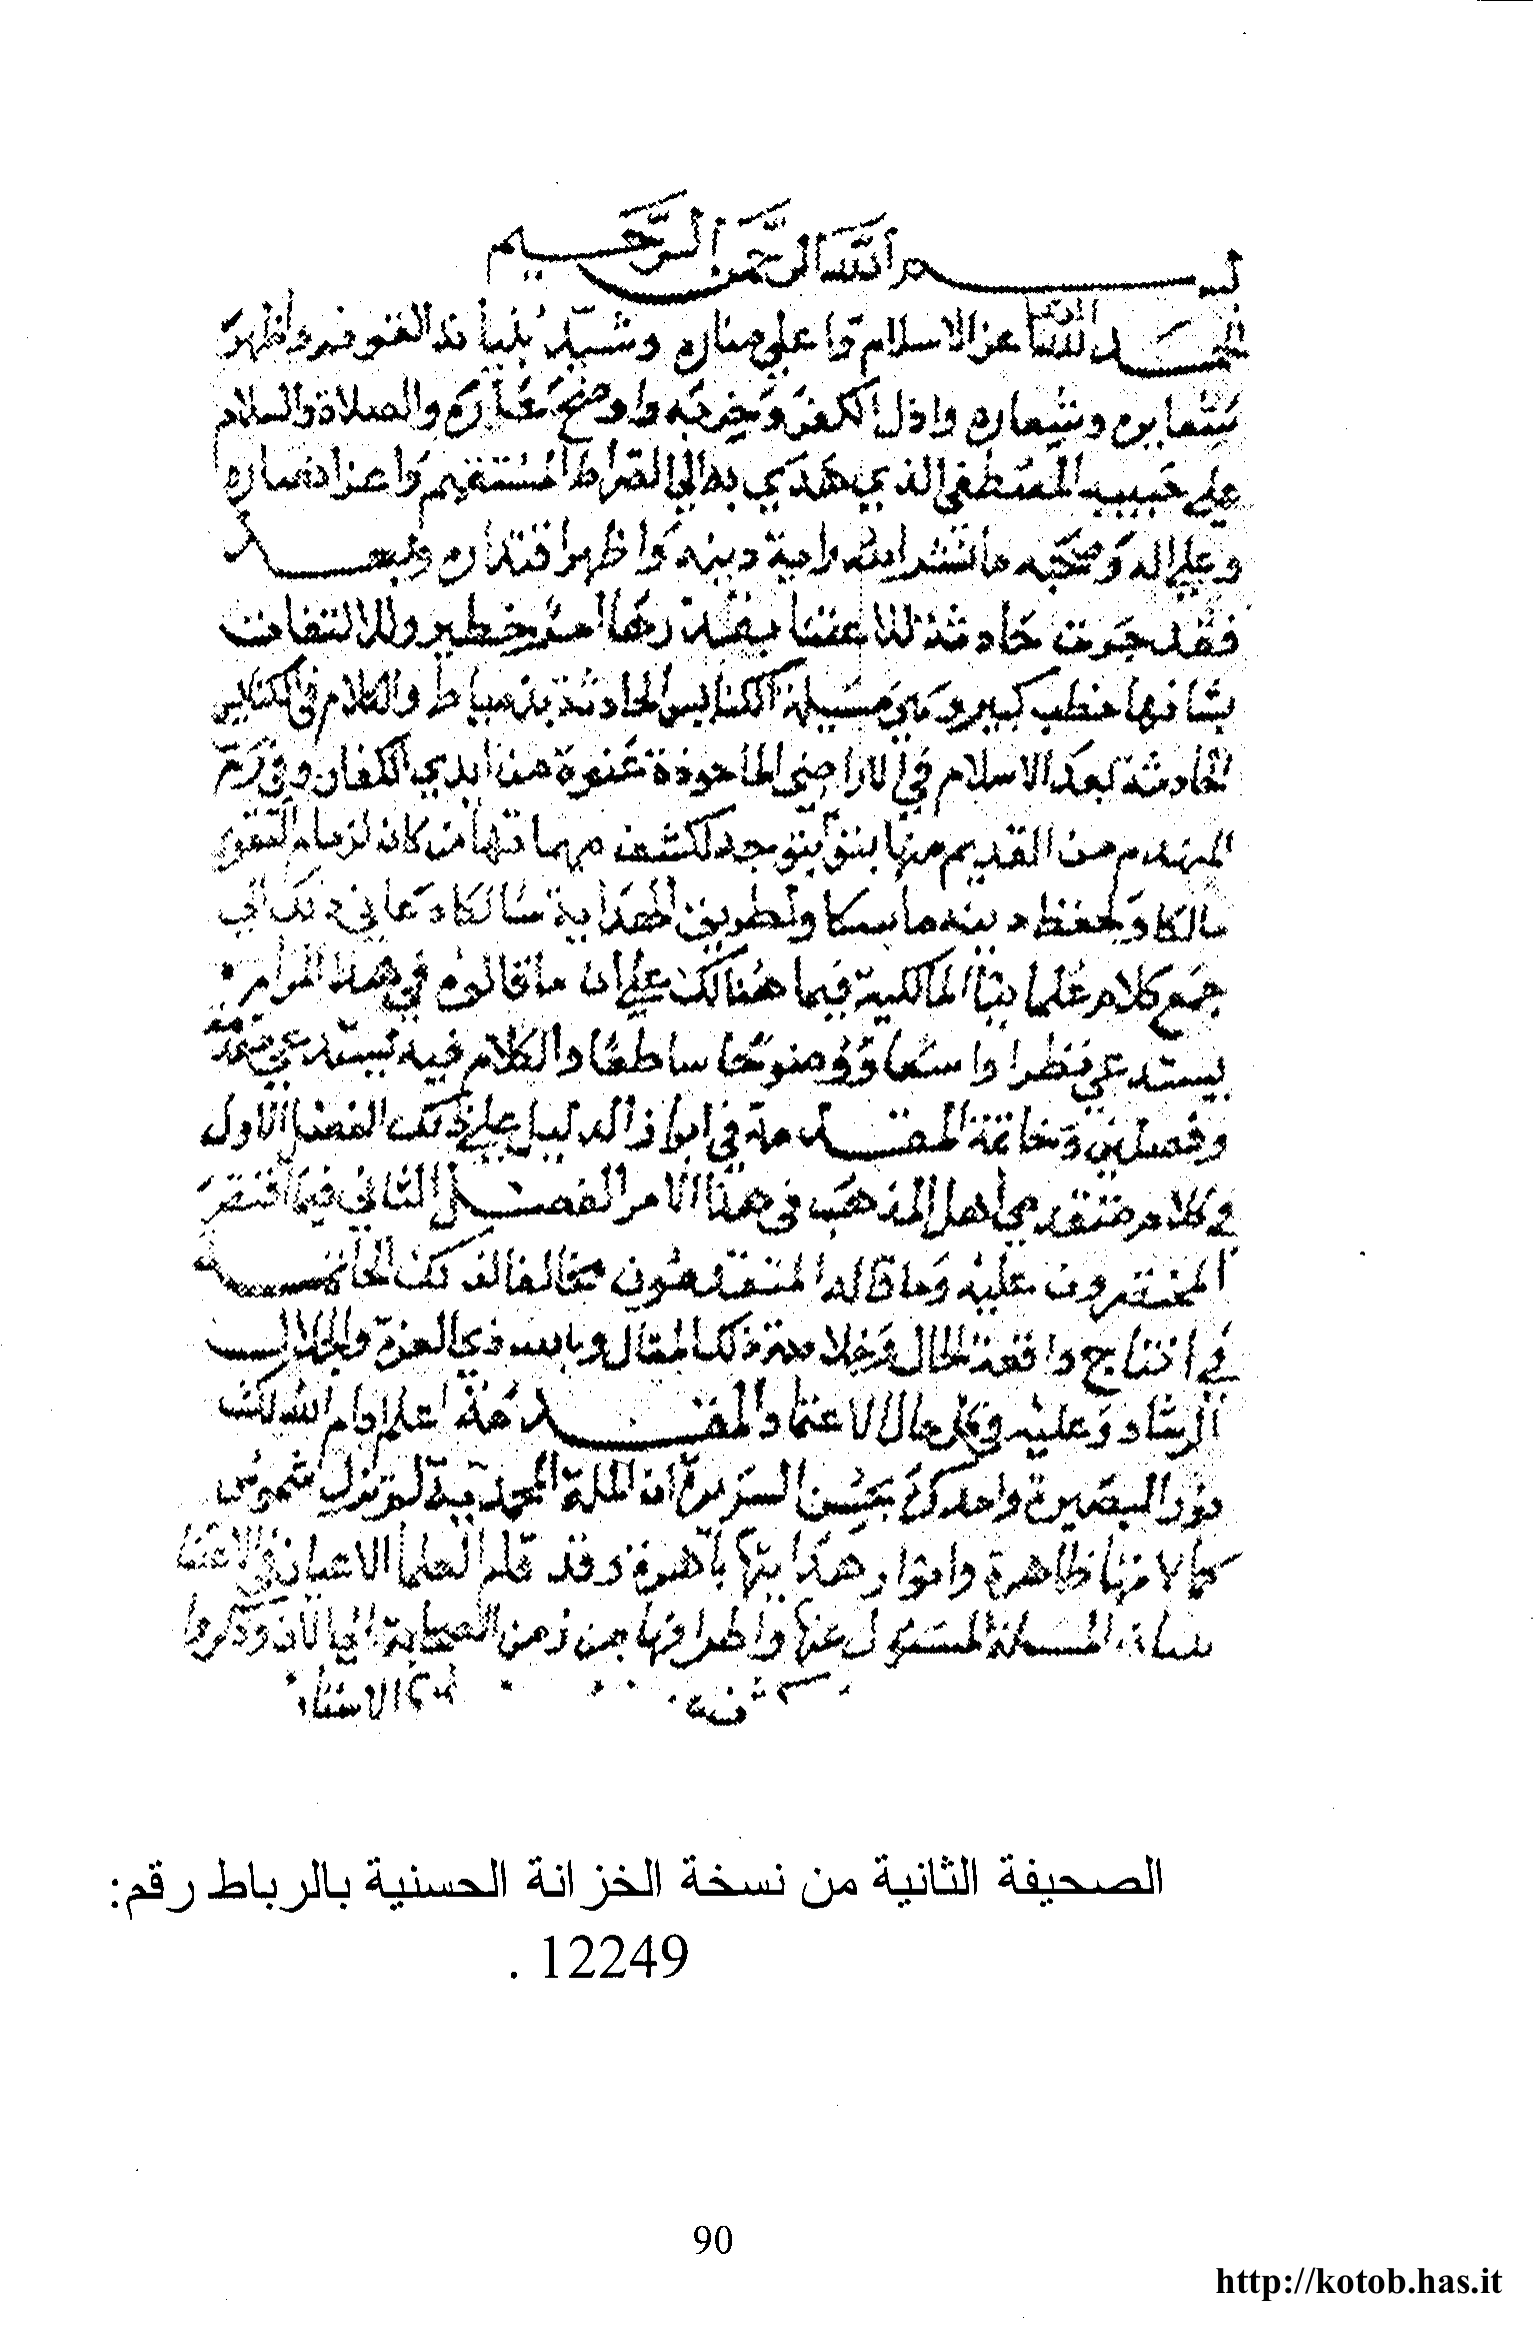 بسم الله الرحمن الرحيم
الحمد لله الذي اعز الاسلام واعلي مناره وشيد بنيانه القوي واظهر
شعايره وشعاره واذل الكفر وحزبه واوضح والصلاة والسلام
علي حبيبه المصطفي الذي هدي به الي الصراط المستقيم واعز انصاره
وعلي اله وصحبه ما نشر الله راية دينه واظهر اقتداره وبعد
فقد جرت حادثة للاعتنا بقدرها امر خطير وللالتفات
بشانها خطب كبير وهي مسيلة الكنايس الحادثة بدمياط والكلام في الكنايس
الحادثة بعد الاسلام في الاراضي الماخوذة عنوة من ايدي الكفار وفي رم
المنهدم من القديم منها بنو توجد لكشف مهماتها من كان لزمام التقوي
مالكا ولحفظ دينه ماسكا ولطريق الهداية سالكا دعاني ذلك الي
جمع كلام علماينا المالكية فيما هنالك علي ان ما قالوه في هذا المرام
يستدعي نظرا واسعا ووضوحا ساطعا والكلام فيه يستدعي مقدمة
وفصلين وخاتمة المقدمة في ابراز الدليل علي ذلك الفصل الاول
في كلام متقدمي اهل المذهب في هذا الامر الفصل الثاني فيما اقتصر
المختصرون عليه وما قاله المتقدمون مخالفا لذلك الخاتمة
في انتاج واقعة الحال وخلاصة ذلك المقال وبالله ذي العزة والجلال
الرشاد وعليه في كل حال الاعتماد المقدمة اعلم ادام الله لك
نور البصيرة وامدك بحسن السريرة ان الملة المحمدية لم تزل شموس
كمالاتها ظاهرة وانوار هدايتها باهرة وقد قام العلما الاعيان في الاعتنا
المسيلة المسيول عنها واطرافها من زمن الصحابة الي الان وذكروا
الصحيفة الثانية من نسخة الخزانة الحسنية بالرباط رقم:
12249 .
90
http://kotob.has.it